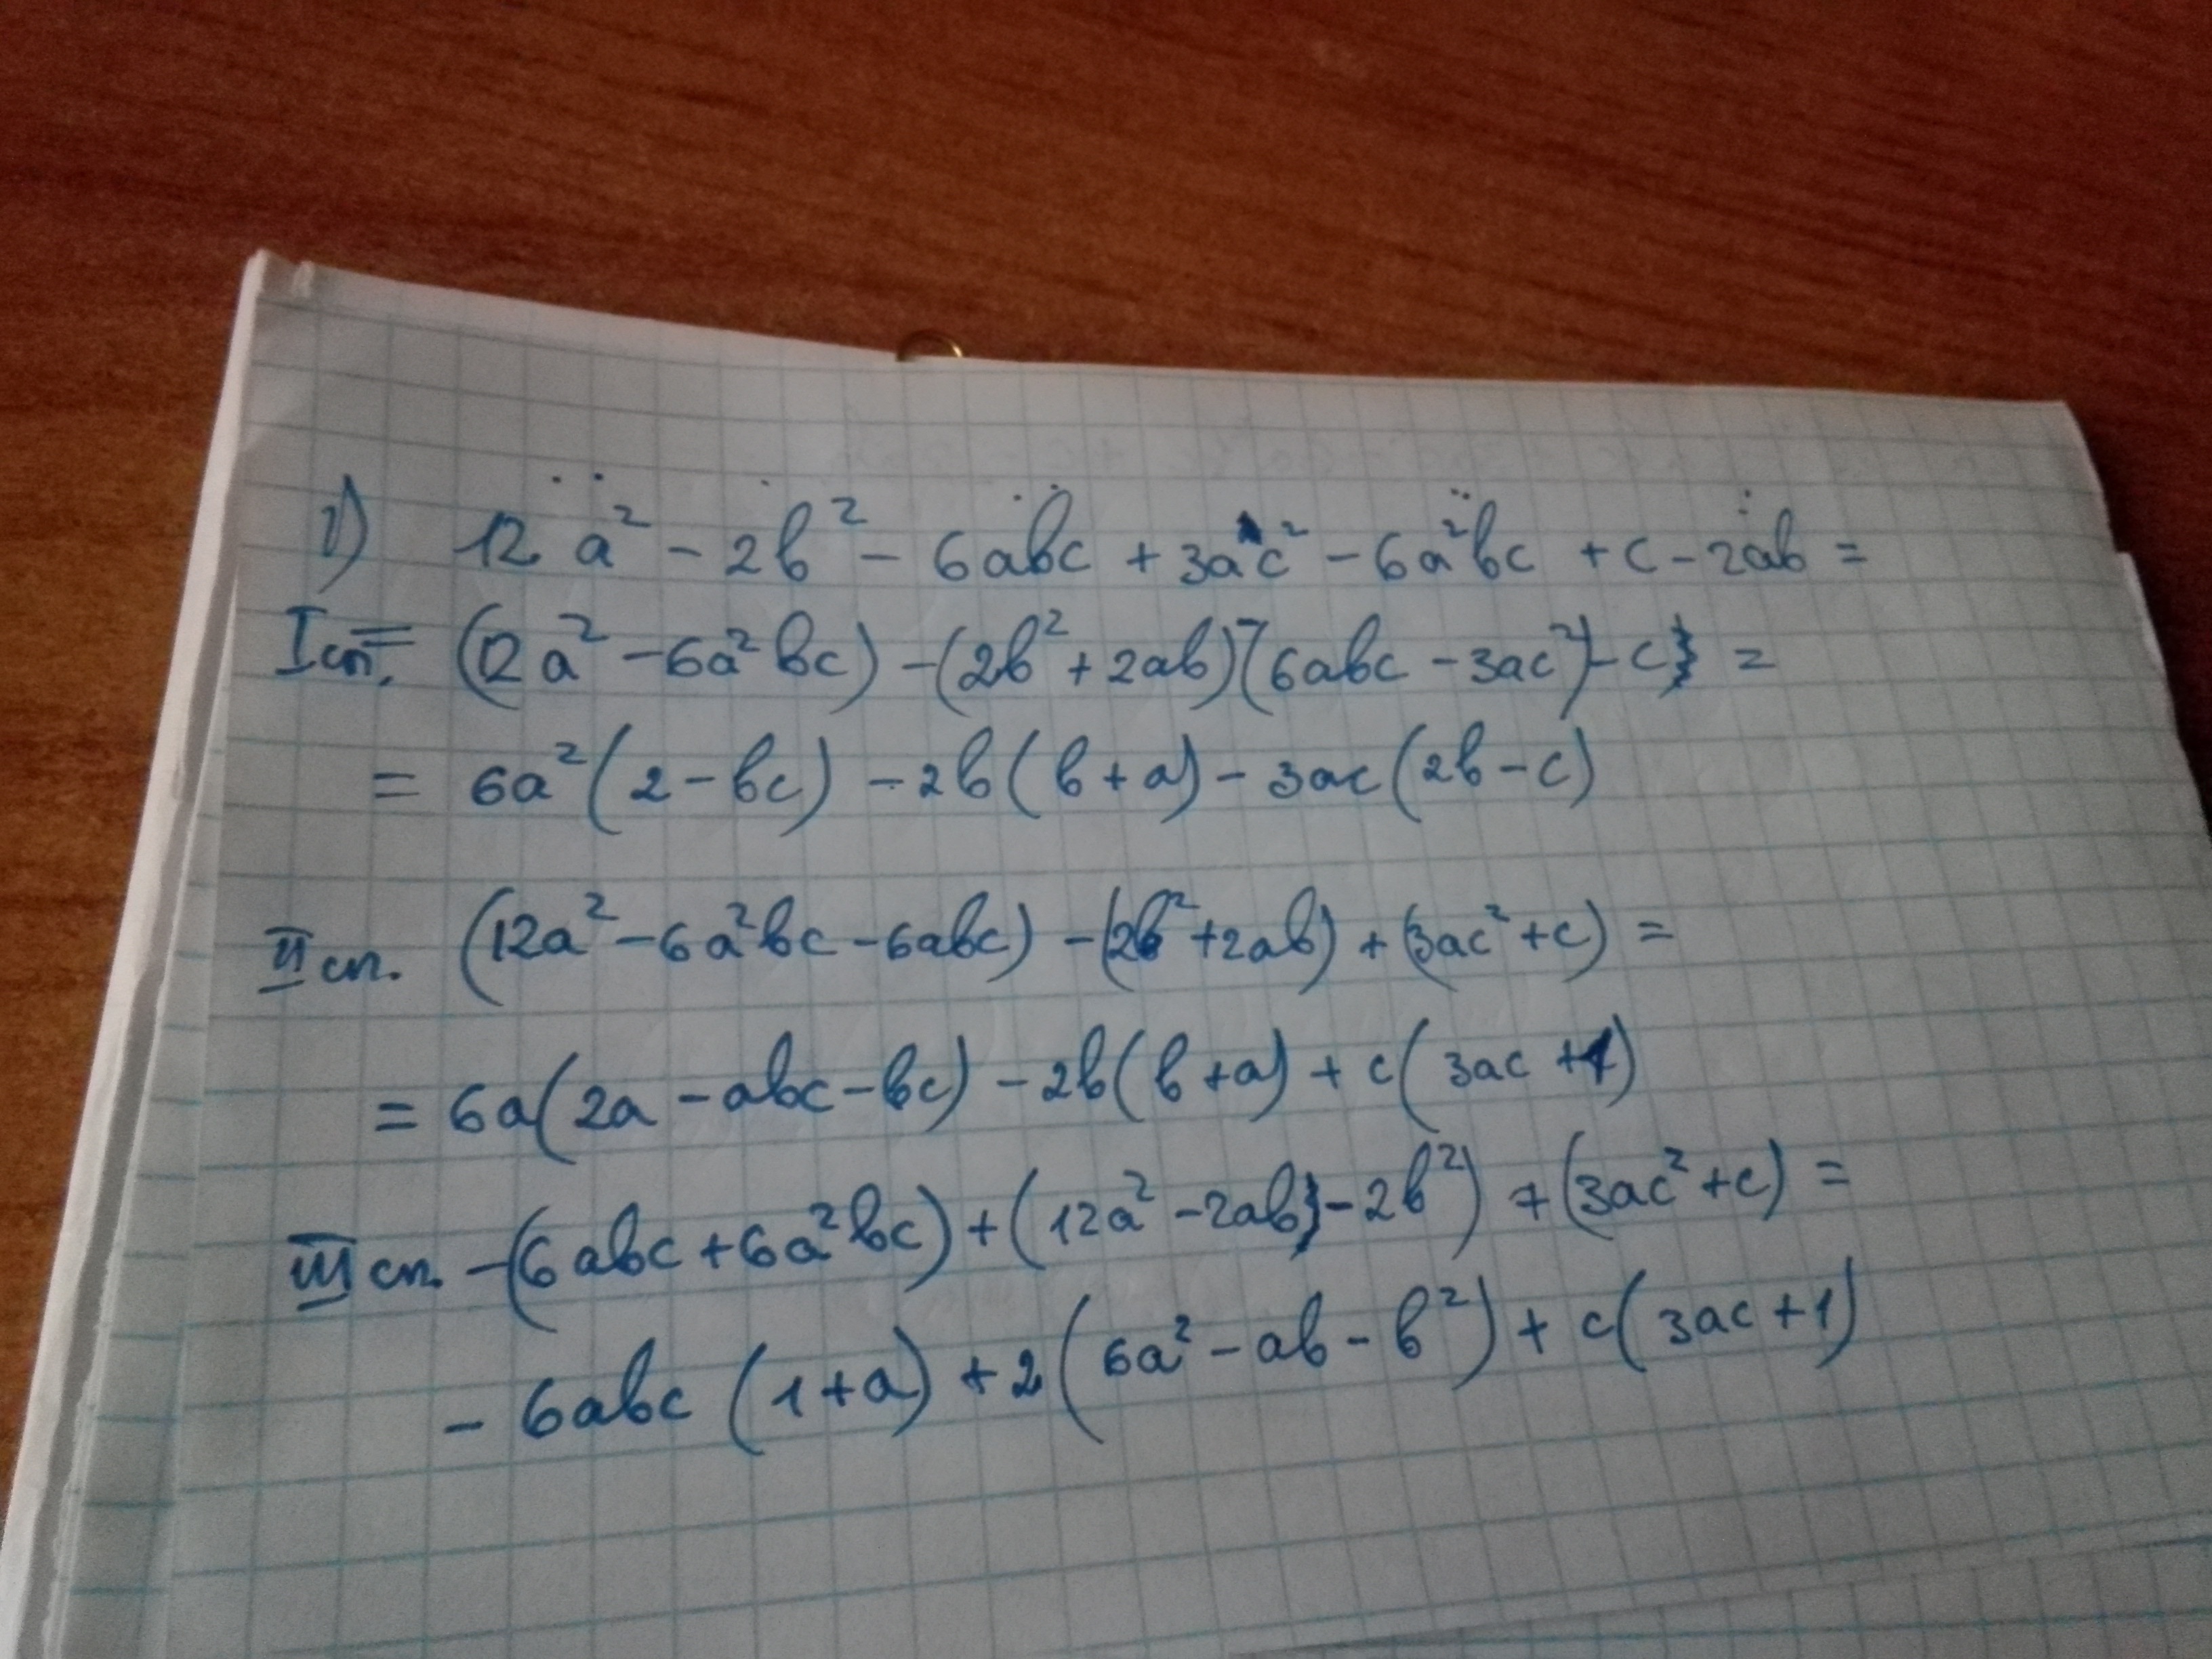 1) 12a² - 2b² - 6abc + 3ac² - 6a²bc + c - 2ab =
I сп. = (12a² - 6a²bc) - (2b² + 2ab) - (6abc - 3ac²) - c =
= 6a²(2 - bc) - 2b(b + a) - 3ac(2b - c)
II сп. (12a² - 6a²bc - 6abc) - (2b² + 2ab) + (3ac² + c) =
= 6a(2a - abc - bc) - 2b(b + a) + c(3ac + 1)
III сп. -(6abc + 6a²bc) + (12a² - 2ab - 2b²) + (3ac² + c) =
- 6abc (1 + a) + 2(6a² - ab - b²) + c(3ac + 1)